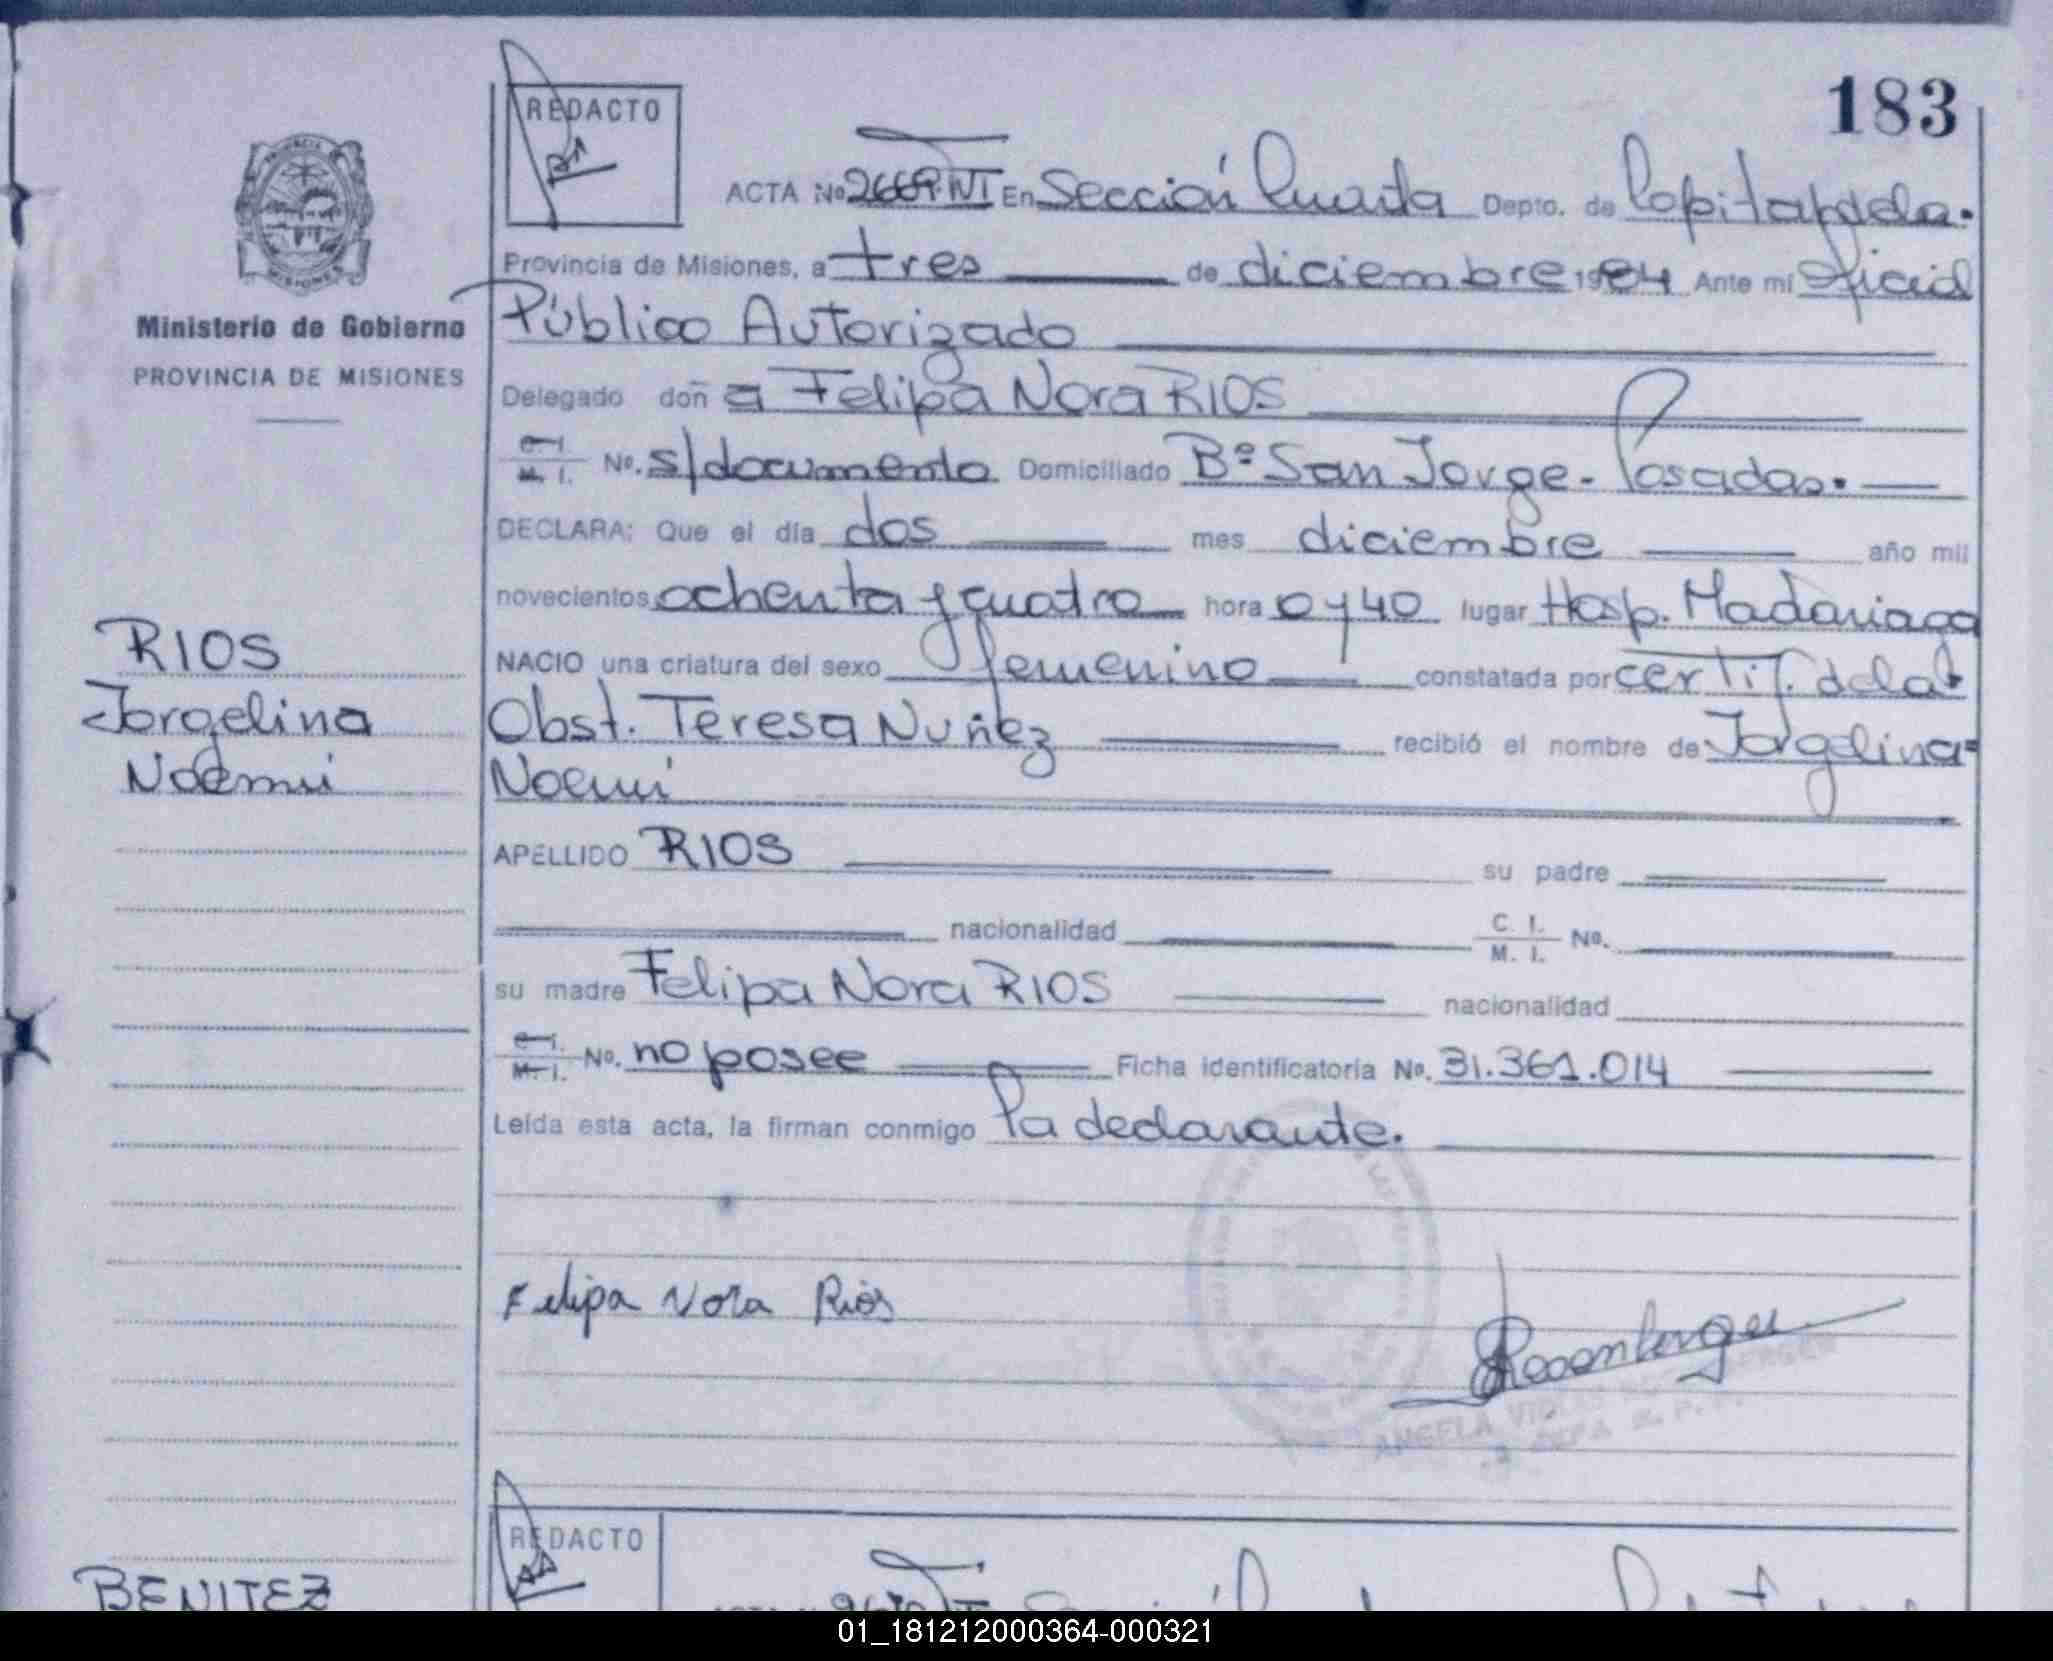 183
REDACTO
ACTA No 2669.T.VI En Sección Cuarta Depto. de Capital de la.
Provincia de Misiones, a tres de diciembre 1984 Ante mi Oficial
Ministerio de Gobierno
PROVINCIA DE MISIONES
Público Autorizado
Delegado doña Felipa Nora RIOS
C. I. M. I. No. s/documento Domiciliado Bº San Jorge - Posadas.
DECLARA: Que el día dos mes diciembre año mil
novecientos ochenta y cuatro hora 0 y 40 lugar Hosp. Madariaga
NACIO una criatura del sexo femenino constatada por certif. de la
Obst. Teresa Nuñez recibió el nombre de Jorgelina
Noemí
RIOS
Jorgelina
Noemí
APELLIDO RIOS su padre
nacionalidad C. I. M. I. No.
su madre Felipa Nora RIOS nacionalidad
C. I. M. I. No. no posee Ficha identificatoria No. 31.361.014
Leída esta acta, la firman conmigo la declarante.
Felipa Nora Rios
Rosenberger
ANGELA
REDACTO
BENITEZ
01_181212000364-000321